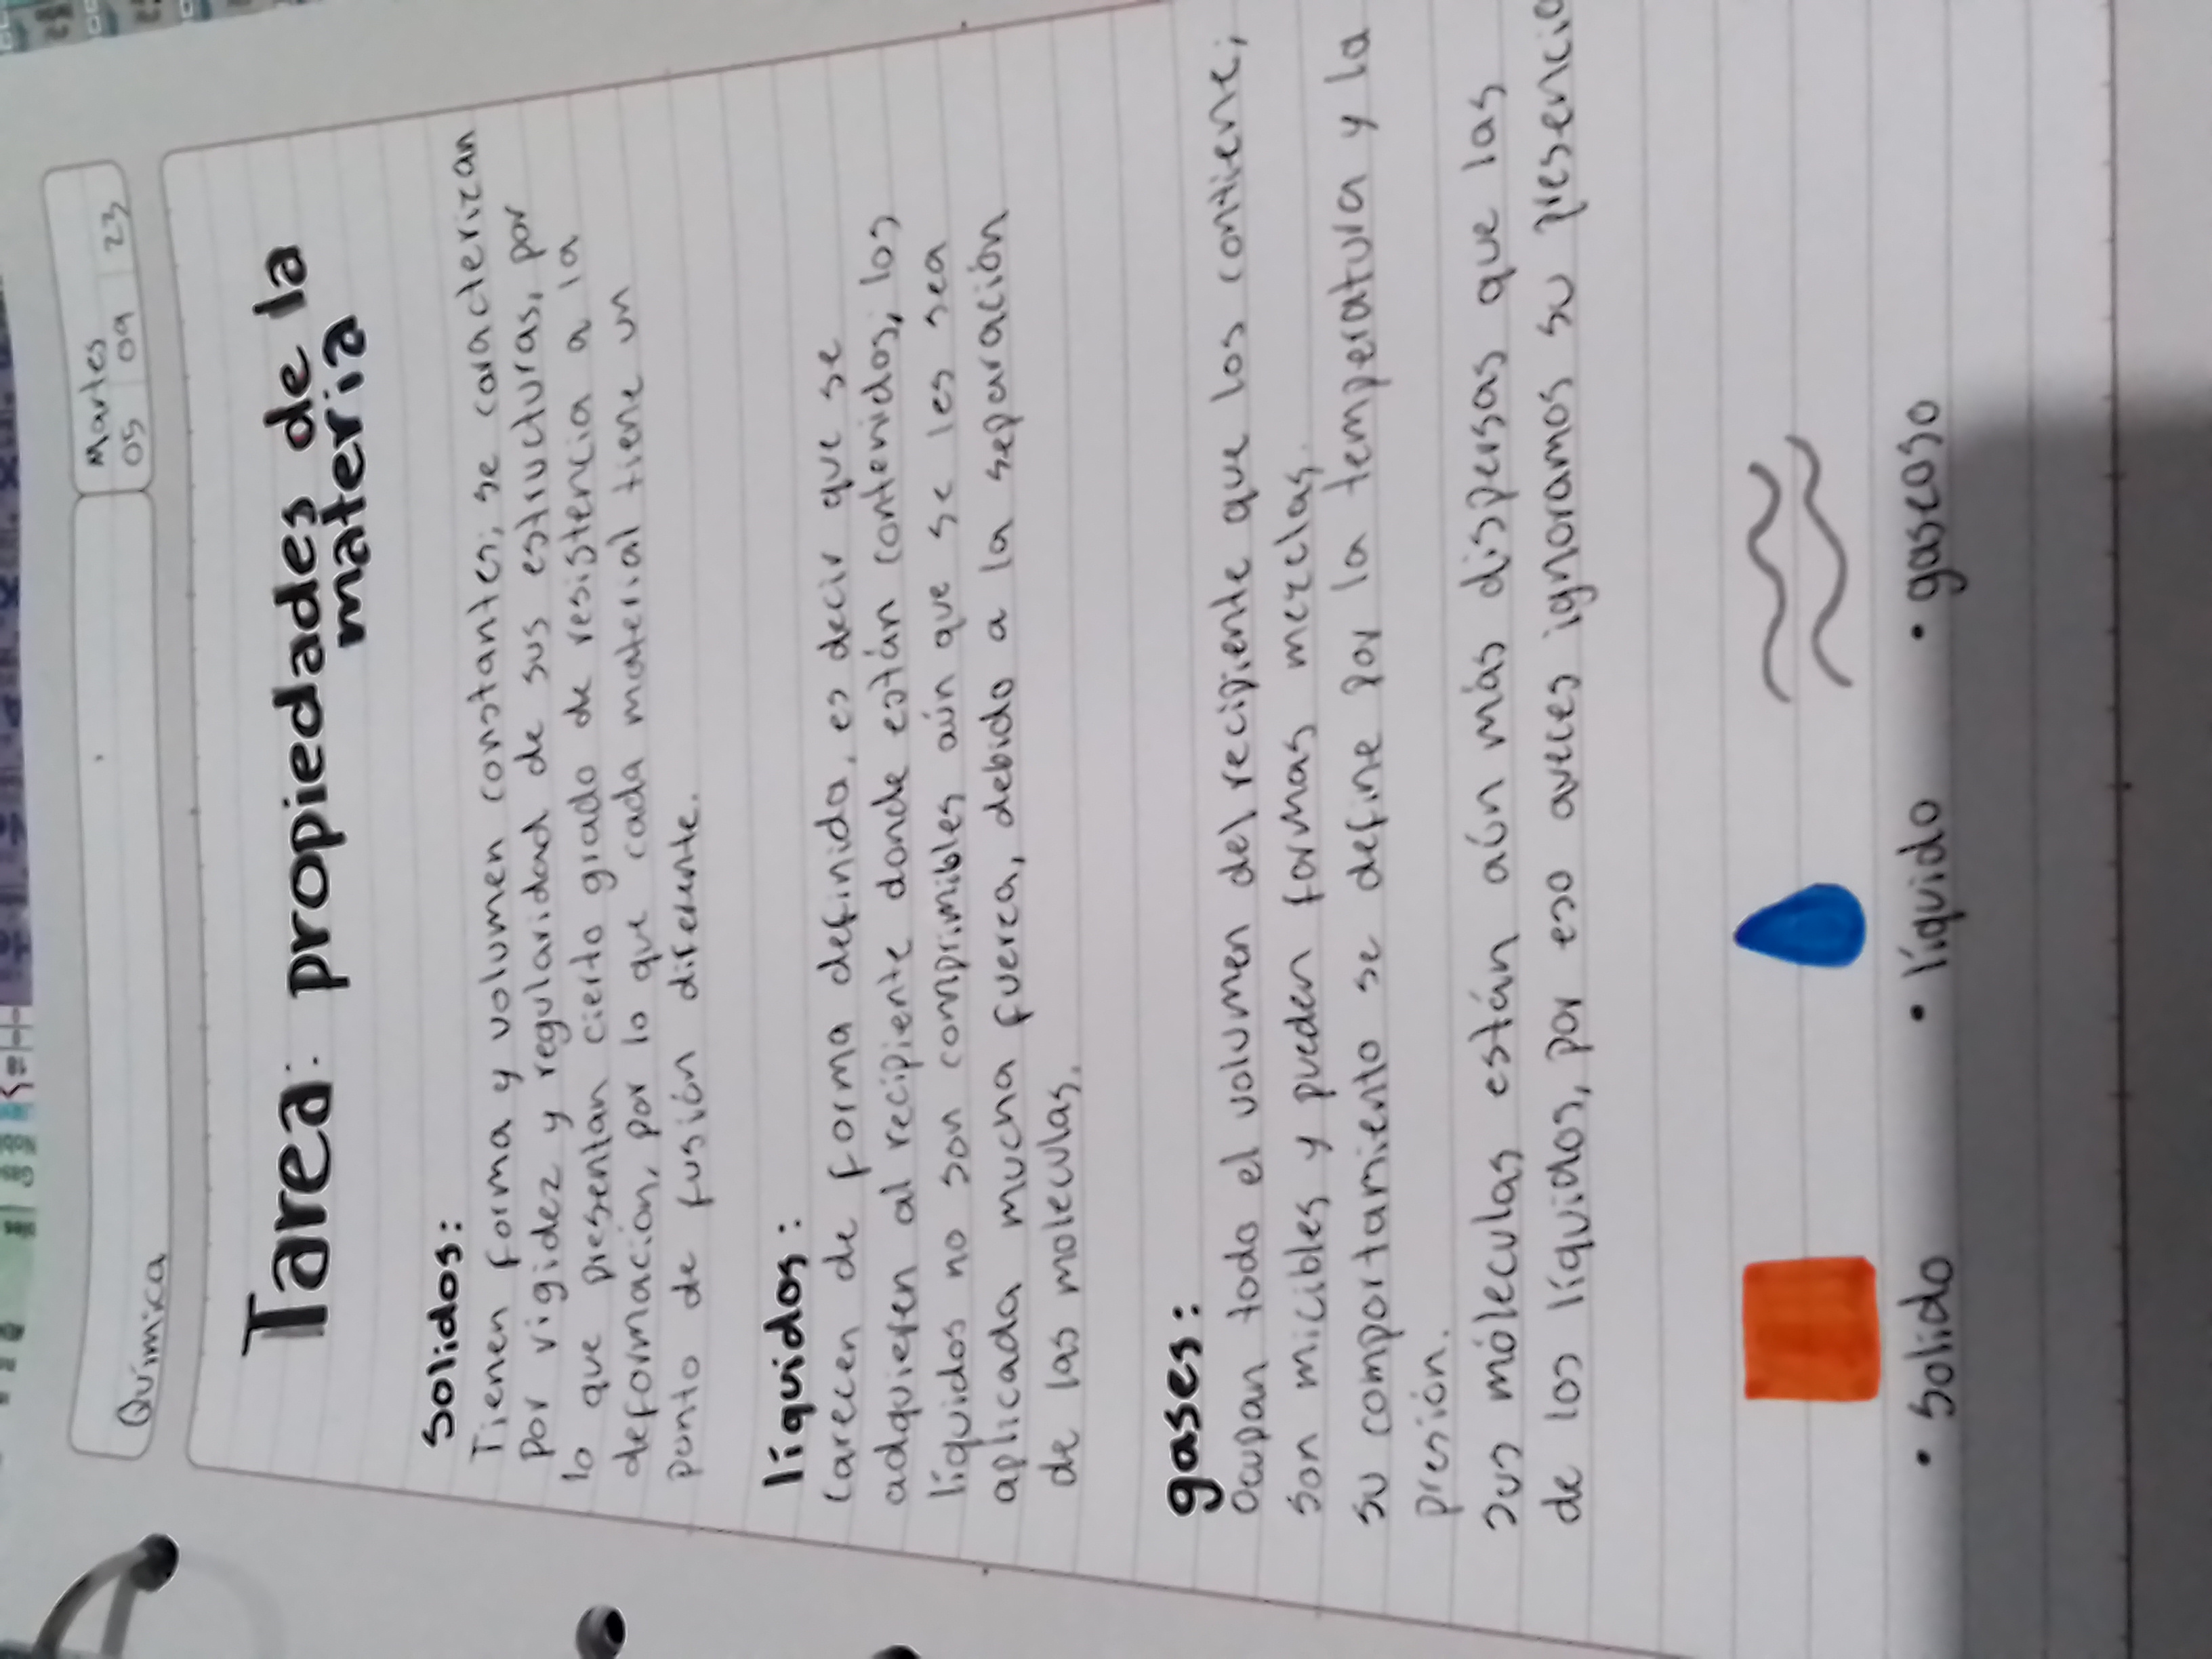 Química
Martes
05 09 23
Tarea: propiedades de la
materia
Solidos:
Tienen forma y volumen constantes; se caracterizan
por rigidez y regularidad de sus estructuras, por
lo que presentan cierto grado de resistencia a la
deformación, por lo que cada material tiene un
punto de fusión diferente.
líquidos:
Carecen de forma definida, es decir que se
adquieren al recipiente donde están contenidos, los
líquidos no son comprimibles aún que se les sea
aplicada mucha fuerza, debido a la separación
de las moleculas.
gases:
Ocupan todo el volumen del recipiente que los contiene;
son micibles y pueden formas mezclas.
su comportamiento se define por la temperatura y la
presión.
sus móleculas están aún más dispersas que las
de los líquidos, por eso aveces ignoramos su presencia
• Solido • líquido • gaseoso